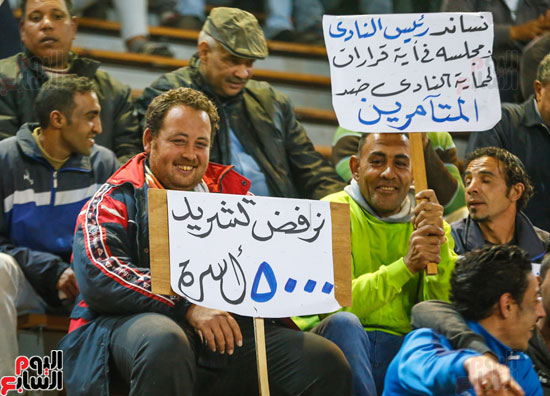 نساند رئيس النادى
ومجلسه فى أية قرارات
لحماية النادى ضد
المتآمرين
نرفض تشريد
٥٠٠٠ أسرة
اليوم
السابع